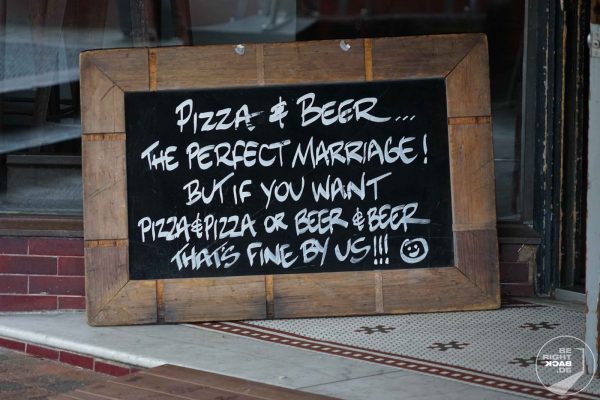 PIZZA & BEER...
THE PERFECT MARRIAGE!
BUT IF YOU WANT
PIZZA & PIZZA OR BEER & BEER
THAT'S FINE BY US!!!
BE
RIGHT
BACK
.DE